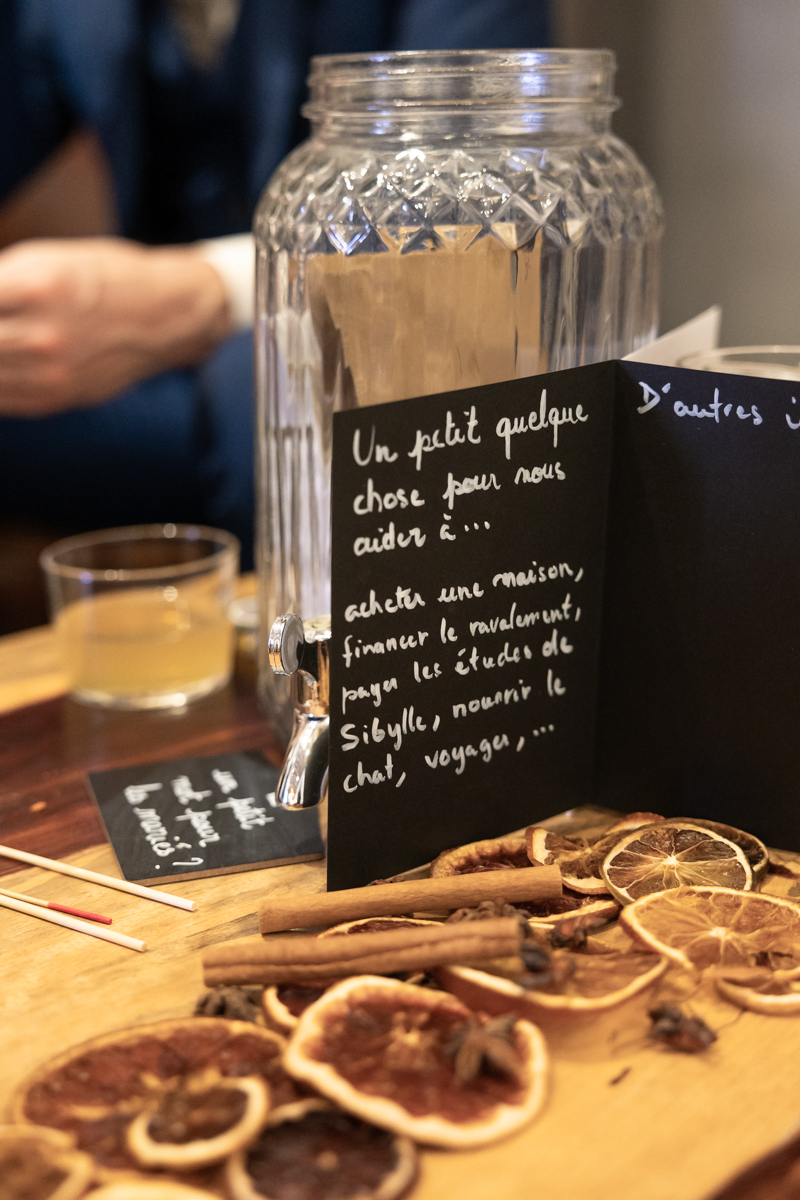 Un petit quelque
chose pour nous
aider à...
acheter une maison,
financer le ravalement,
payer les études de
Sibylle, nourrir le
chat, voyager, ...
D'autres
un petit
mot pour
les mariés ?